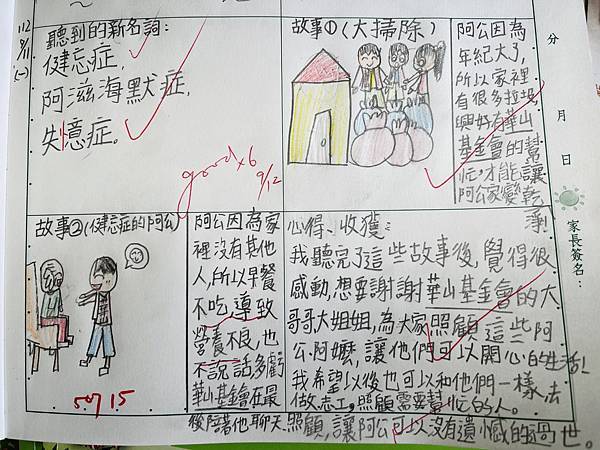 112
9/11
(一)
聽到的新名詞:
健忘症,
阿滋海默症,
失憶症。
good x6
9/12
故事①(大掃除)
阿公因為
年紀大了,
所以家裡
有很多垃圾,
興好有華山
基金會的幫
忙,才能讓
阿公家變乾
淨
分
月
日
家長簽名:
故事②(健忘症的阿公)
阿公因為家
裡沒有其他
人,所以早餐
不吃,導致
營養不良,也
不說話多虧
華山基金會在最
後陪著他聊天、照顧,讓阿公可以沒有遺憾的過世。
心得、收獲:
我聽完了這些故事後,覺得很
感動,想要謝謝華山基金會的大
哥哥大姐姐,為大家照顧這些阿
公、阿嬤,讓他們可以開心的生活!
我希望以後也可以和他們一樣,去
做志工,照顧需要幫忙的人。